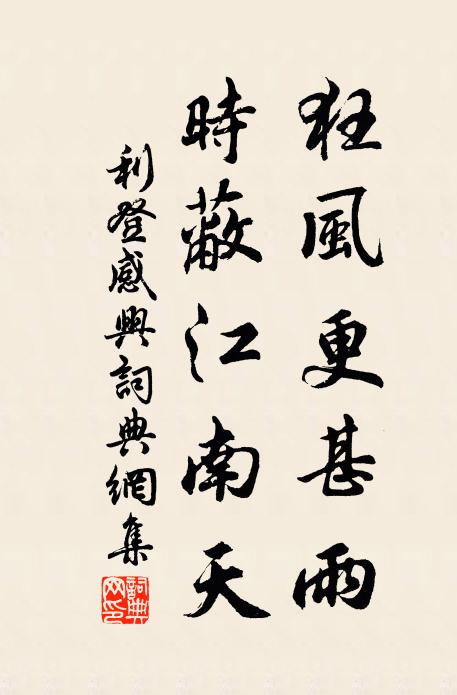 狂風更甚雨
時蔽江南天
利登感興詞典網集
詞典网印